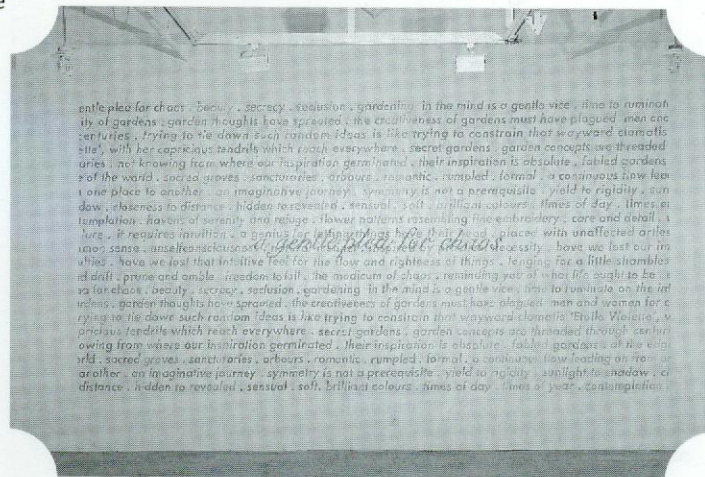 e
entle plea for chaos . beauty . secrecy . seclusion . gardening in the mind is a gentle vice . time to ruminat
ity of gardens . garden thoughts have sprouted . the creativeness of gardens must have plagued men and
centuries . trying to tie down such random ideas is like trying to constrain that wayward clematis
, with her capricious tendrils which reach everywhere . secret gardens . garden concepts are threaded
uries . not knowing from where our inspiration germinated . their inspiration is absolute . fabled gardens
e of the world . sacred groves . sanctuaries . arbours . romantic . rumpled . formal . a continuous flow
one place to another . an imaginative journey . symmetry is not a prerequisite . yield to rigidity . sun
dow . closeness to distance . hidden to revealed . sensual . soft . brilliant colours . times of day . times
templation . havens of serenity and refuge . flower patterns resembling fine embroidery . care and detail .
it requires intuition . a genius for letting things have their head . placed with unaffected
sense . unselfconsciousness necessity . have we lost our
a gentle plea for chaos
. have we lost that intuitive feel for the flow and rightness of things . longing for a little shambles
drift . prune and amble . freedom to loll . the modicum of chaos . reminding you of what life ought to be .
for chaos . beauty . secrecy . seclusion . gardening in the mind is a gentle vice . time to ruminate on the
. garden thoughts have sprouted . the creativeness of gardens must have plagued men and women for c
rying to tie down such random ideas is like trying to constrain that wayward clematis 'Etoile Violette',
capricious tendrils which reach everywhere . secret gardens . garden concepts are threaded through
owing from where our inspiration germinated . their inspiration is absolute . fabled gardens at the edge
orld . sacred groves . sanctuaries . arbours . romantic . rumpled . formal . a continuous flow leading on from
another . an imaginative journey . symmetry is not a prerequisite . yield to rigidity . sunlight to shadow .
distance . hidden to revealed . sensual . soft . brilliant colours . times of day . times of year . contemplation .